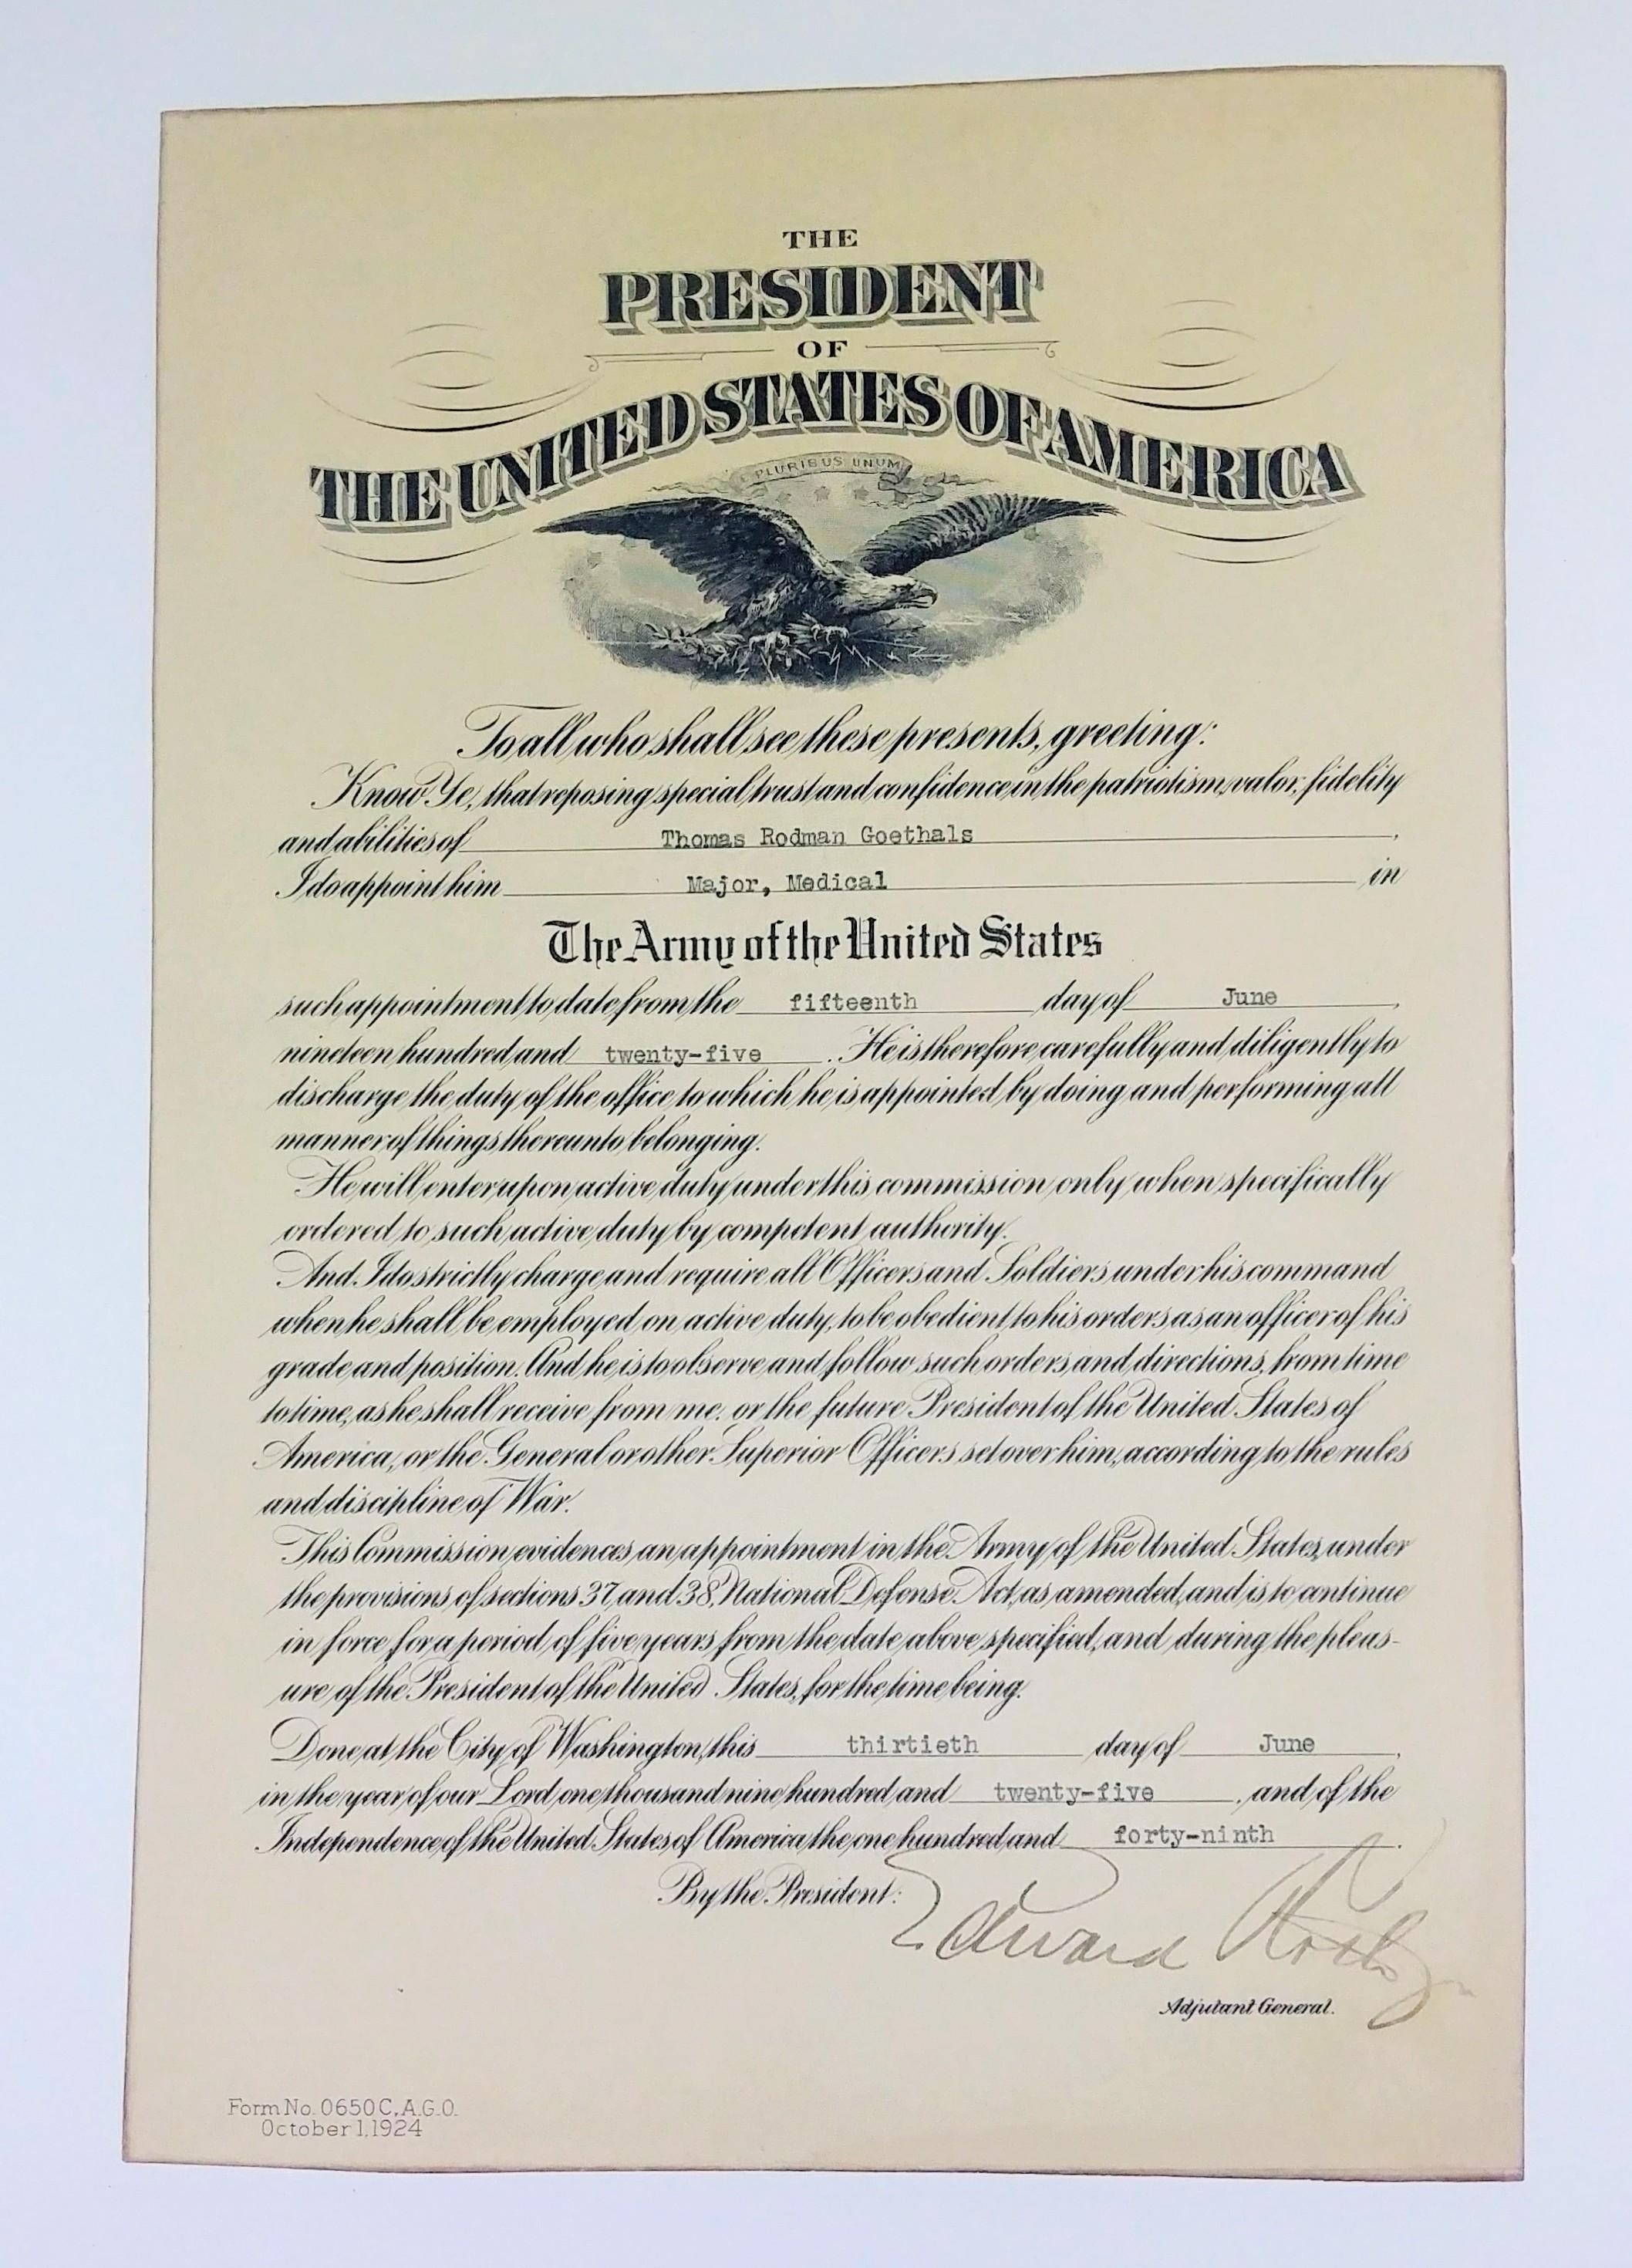 THE
PRESIDENT
OF
THE UNITED STATES OF AMERICA
PLURIBUS UNUM
To all who shall see these presents, greeting:
Know Ye, that reposing special trust and confidence in the patriotism, valor, fidelity
and abilities of Thomas Rodman Goethals,
I do appoint him Major, Medical in
The Army of the United States
such appointment to date from the fifteenth day of June,
nineteen hundred and twenty-five. He is therefore carefully and diligently to
discharge the duty of the office to which he is appointed by doing and performing all
manner of things thereunto belonging.
He will enter upon active duty under this commission only when specifically
ordered to such active duty by competent authority.
And I do strictly charge and require all Officers and Soldiers under his command
when he shall be employed on active duty, to be obedient to his orders as an officer of his
grade and position. And he is to observe and follow such orders and directions, from time
to time, as he shall receive from me, or the future President of the United States of
America, or the General or other Superior Officers set over him, according to the rules
and discipline of War.
This Commission evidences an appointment in the Army of the United States under
the provisions of sections 37 and 38, National Defense Act, as amended, and is to continue
in force for a period of five years from the date above specified, and during the pleas-
ure of the President of the United States, for the time being.
Done at the City of Washington, this thirtieth day of June,
in the year of our Lord one thousand nine hundred and twenty-five, and of the
Independence of the United States of America the one hundred and forty-ninth.
By the President:
Edward
Adjutant General.
Form No. 0650 C, A.G.O.
October 1, 1924